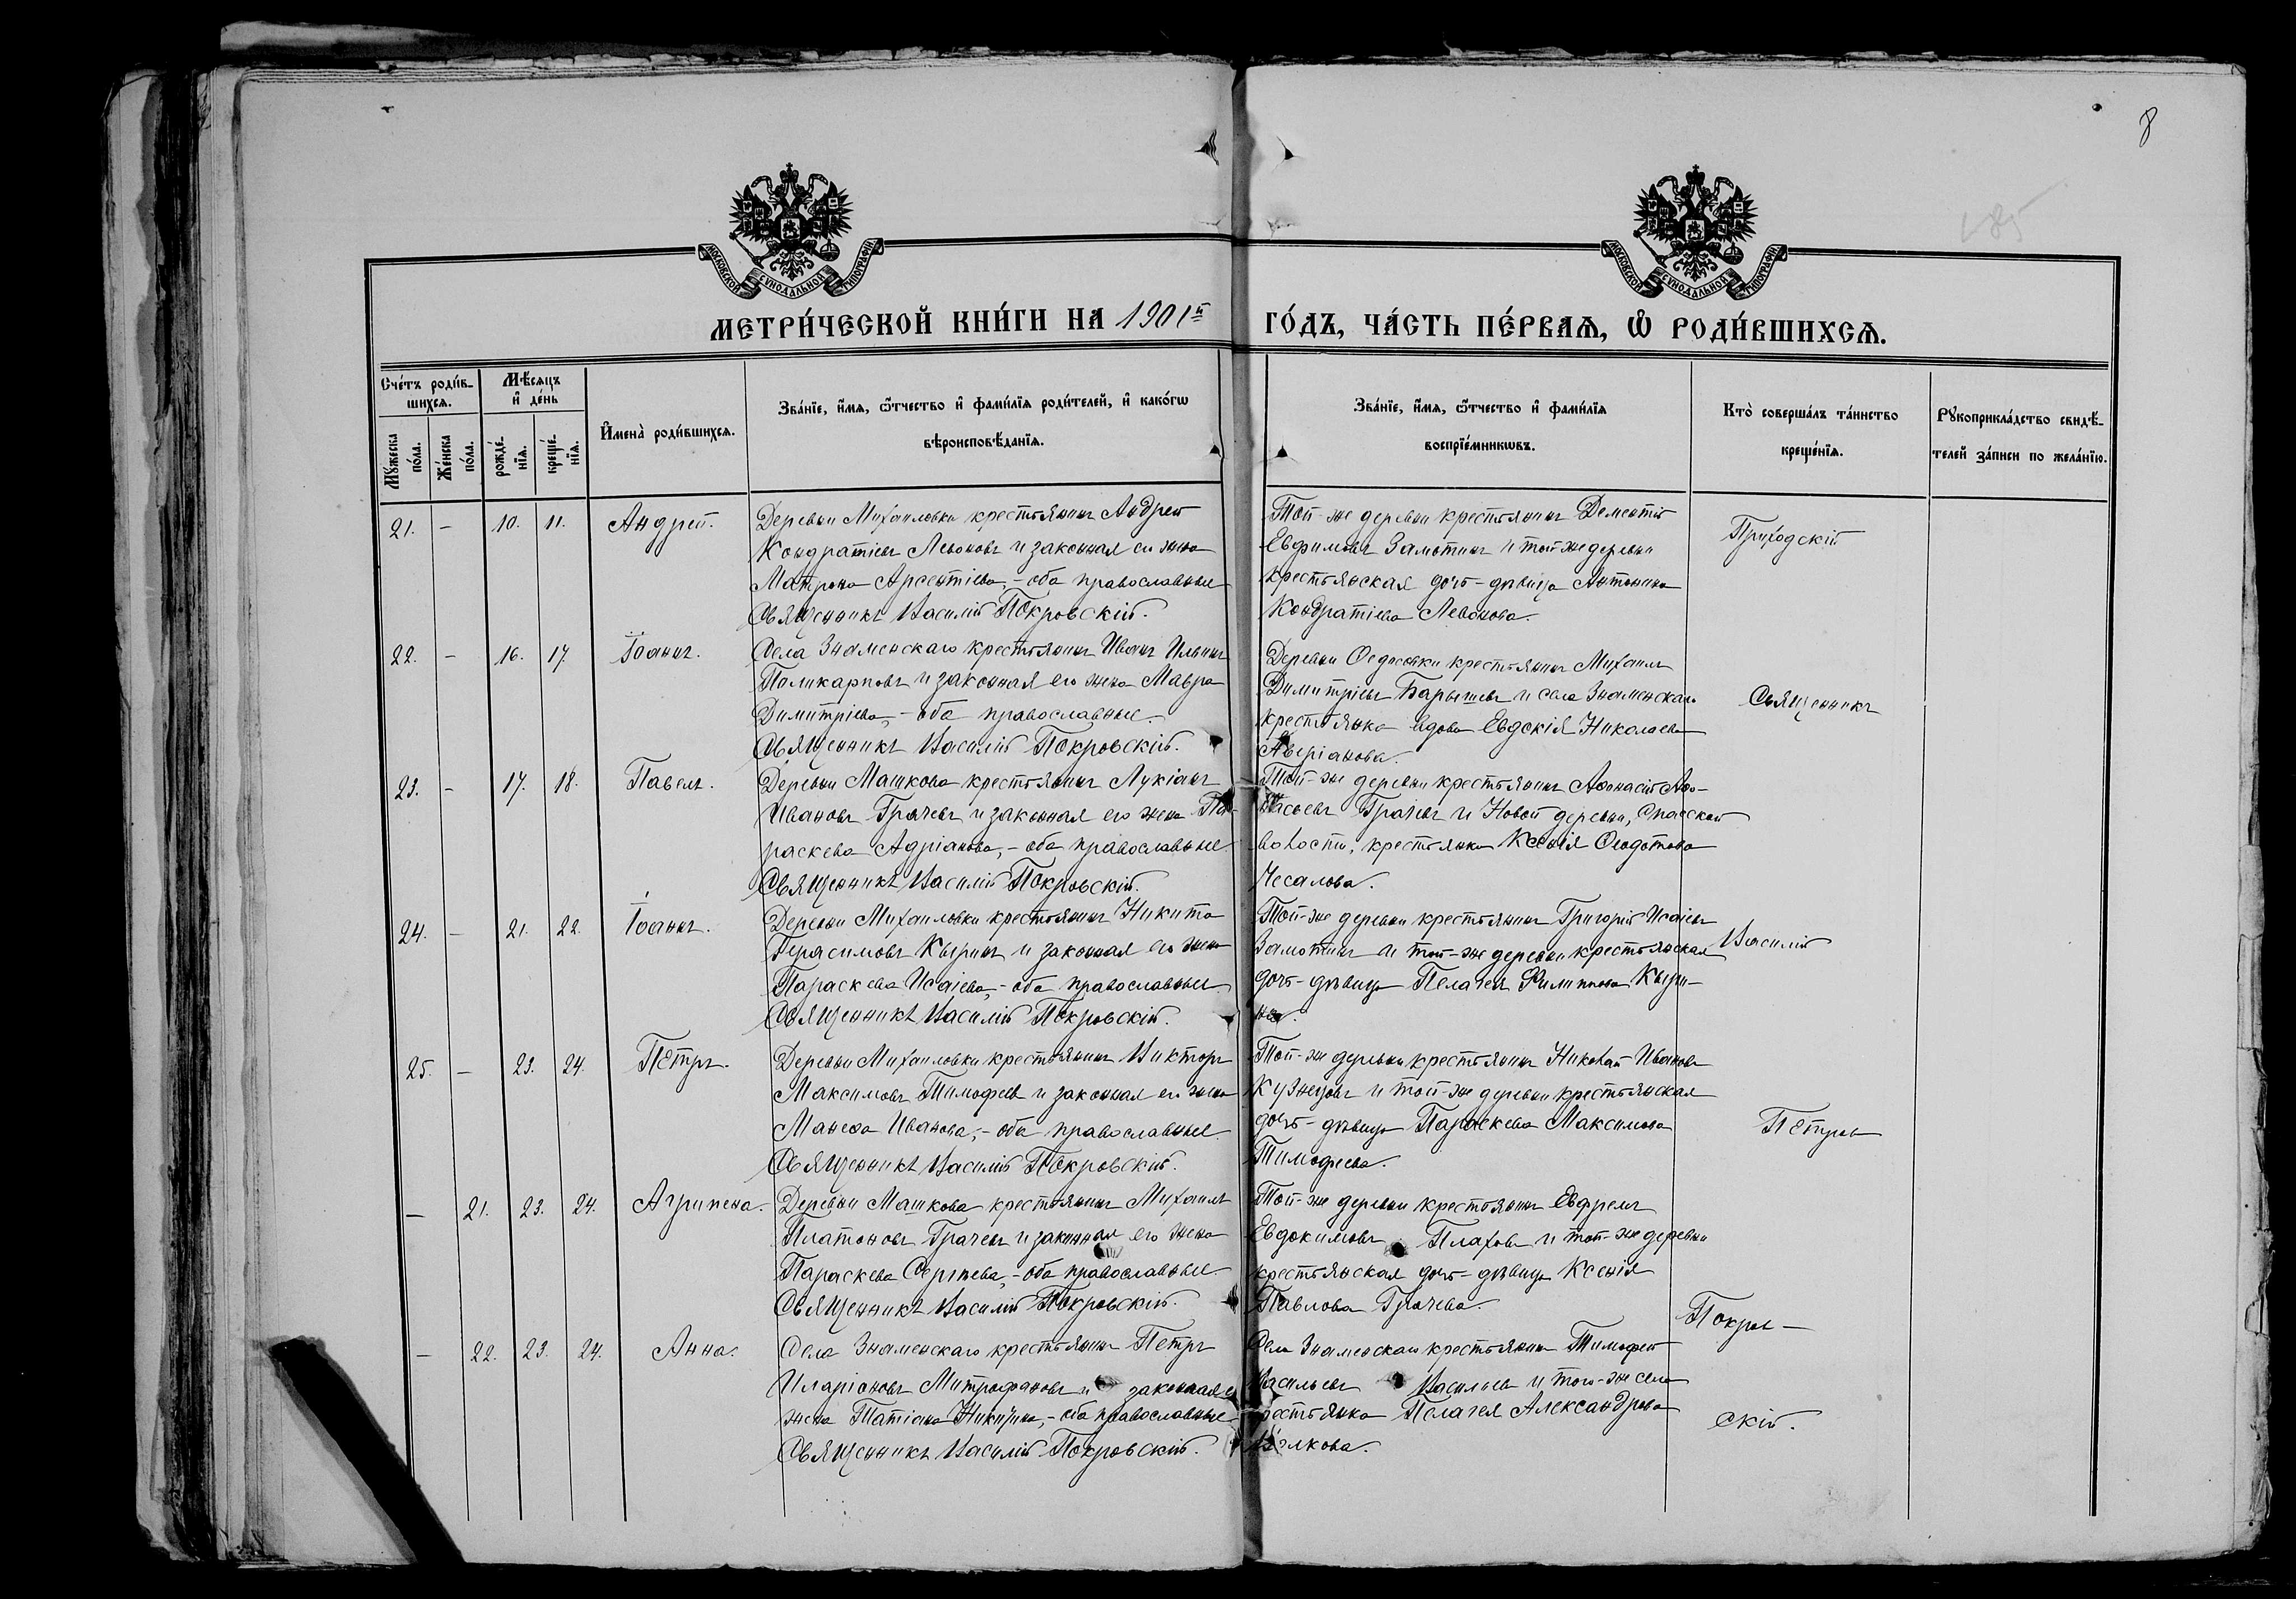 8
МОСКОВСКОЙ СѴНОДАЛЬНОЙ ТИПОГРАФІИ
МОСКОВСКОЙ СѴНОДАЛЬНОЙ ТИПОГРАФІИ
МЕТРИ́ЧЕСКОЙ КНИ́ГИ НА 1901й ГО́ДЪ, ЧА́СТЬ ПЕ́РВАѦ, Ѡ҆ РОДИ́ВШИХСѦ.
Сче́тъ роди́в-
шихсѧ.
Мꙋ́жеска по́ла.
Же́нска по́ла.
Мѣ́сѧцъ
и҆ де́нь
рожде́-
нїѧ.
креще́-
нїѧ.
И҆мена̀ роди́вшихсѧ.
Зва́нїе, и҆́мѧ, ѻ҆́тчество и҆ фами́лїѧ роди́телей, и҆ како́гѡ
вѣроисповѣ́данїѧ.
Зва́нїе, и҆́мѧ, ѻ҆́тчество и҆ фами́лїѧ
воспрїе́мникѡвъ.
Кто̀ соверша́лъ та́инство
креще́нїѧ.
Рꙋкоприкла́дство свидѣ́-
телей за́писи по жела́нїю.
21. – 10. 11. Андрей.
Деревни Михаиловки крестьянинъ Андрей
Кондратіевъ Левоновъ и законная его жена
Матрона Арсентіева, – оба православные
Священникъ Василій Покровскій.
Той-же деревни крестьянинъ Дементій
Евфимовъ Замотинъ и той-же деревни
крестьянская дочь – дѣвица Антонина
Кондратіева Левонова.
22. – 16. 17. Іоаннъ.
Села Знаменскаго крестьянинъ Иванъ Ильинъ
Поликарповъ и законная его жена Мавра
Димитріева, – оба православные.
Священникъ Василій Покровскій.
Деревни Ѳедосовки крестьянинъ Михаилъ
Димитріевъ Барышевъ и села Знаменскаго
крестьянка вдова Евдокія Николаева
Аверіанова.
23. – 17. 18. Павелъ.
Деревни Машкова крестьянинъ Лукіанъ
Ивановъ Грачевъ и законная его жена Па-
раскева Адріанова, – оба православные.
Священникъ Василій Покровскій.
Той-же деревни крестьянинъ Аѳонасій Аѳо-
насьевъ Грачевъ и Новой деревни, Спасской
волости, крестьянка Ксенія Ѳеодотова
Чесалова.
24. – 21. 22. Іоаннъ.
Деревни Михаиловки крестьянинъ Никита
Герасимовъ Кыринъ и законная его жена
Параскева Исаіева, – оба православные
Священникъ Василій Покровскій.
Той-же деревни крестьянинъ Григорій Исаіевъ
Замотинъ и той-же деревни крестьянская
дочь – дѣвица Пелагея Филиппова Кыри-
на.
25. – 23. 24. Петръ.
Деревни Михаиловки крестьянинъ Викторъ
Максимовъ Тимофеев и законная его жена
Манефа Иванова, – оба православные.
Священникъ Василій Покровскій.
Той-же деревни крестьянинъ Николай Ивановъ
Кузнецовъ и той-же деревни крестьянская
дочь – дѣвица Параскева Максимова
Тимофеева.
– 21. 23. 24. Агрипена.
Деревни Машкова крестьянинъ Михаилъ
Платоновъ Грачевъ и законная его жена
Параскева Сергѣева, – оба православные.
Священникъ Василій Покровскій.
Той-же деревни крестьянинъ Евфремъ
Евдокимовъ Плаховъ и той-же деревни
крестьянская дочь – дѣвица Ксенія
Павлова Грачева.
– 22. 23. 24. Анна.
Села Знаменскаго крестьянинъ Петръ
Иларіоновъ Митрофановъ и законная его
жена Татіана Никитина, – оба православные
Священникъ Василій Покровскій.
Села Знаменскаго крестьянинъ Тимофей
Васильевъ Васильев и того-же села
крестьянка Пелагея Александрова
Приходскій
Священникъ
Василій
Петров
Покров –
скій.